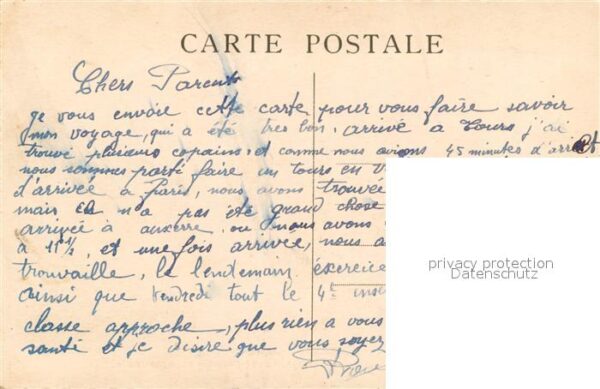 CARTE POSTALE
Chers Parents
je vous envoie cette carte pour vous faire savoir
mon voyage, qui a été tres bon. arrivé a Tours j'ai
trouvé plusieurs copains. et comme nous avions 45 minutes d'arret
nous sommes parti faire un tours en
d'arrivée a Paris, nous avons trouvée
mais n'a pas été grand chose
arrivée à auxerre, ou nous avons
a 11½, et une fois arrivée, nous a
trouvaille, le lendemain éxercice
ainsi que Vendredi tout le 4e
classe approche, plus rien a vous
santé et je désire que vous soyez
privacy protection
Datenschutz